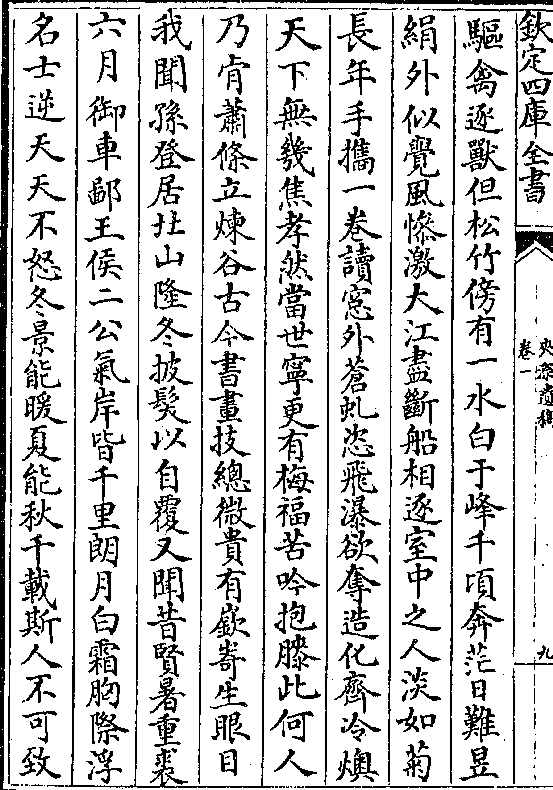 欽定四庫全書
卷一
九
驅禽逐獸但松竹傍有一水白于峰千頃奔茫日難昱
絹外似覺風慘激大江盡斷船相逐室中之人淡如菊
長年手攜一卷讀窓外蒼虬恣飛瀑欲奪造化齊冷燠
天下無幾焦孝然當世寧更有梅福苦吟抱膝此何人
乃肯蕭條立煉谷古今書畫技總微貴有嶔嵜生眼目
我聞孫登居北山隆冬披髮以自覆又聞昔賢暑重裘
六月御車鄙王侯二公氣岸皆千里朗月白霜胸際浮
名士逆天天不怒冬景能暖夏能秋千載斯人不可致